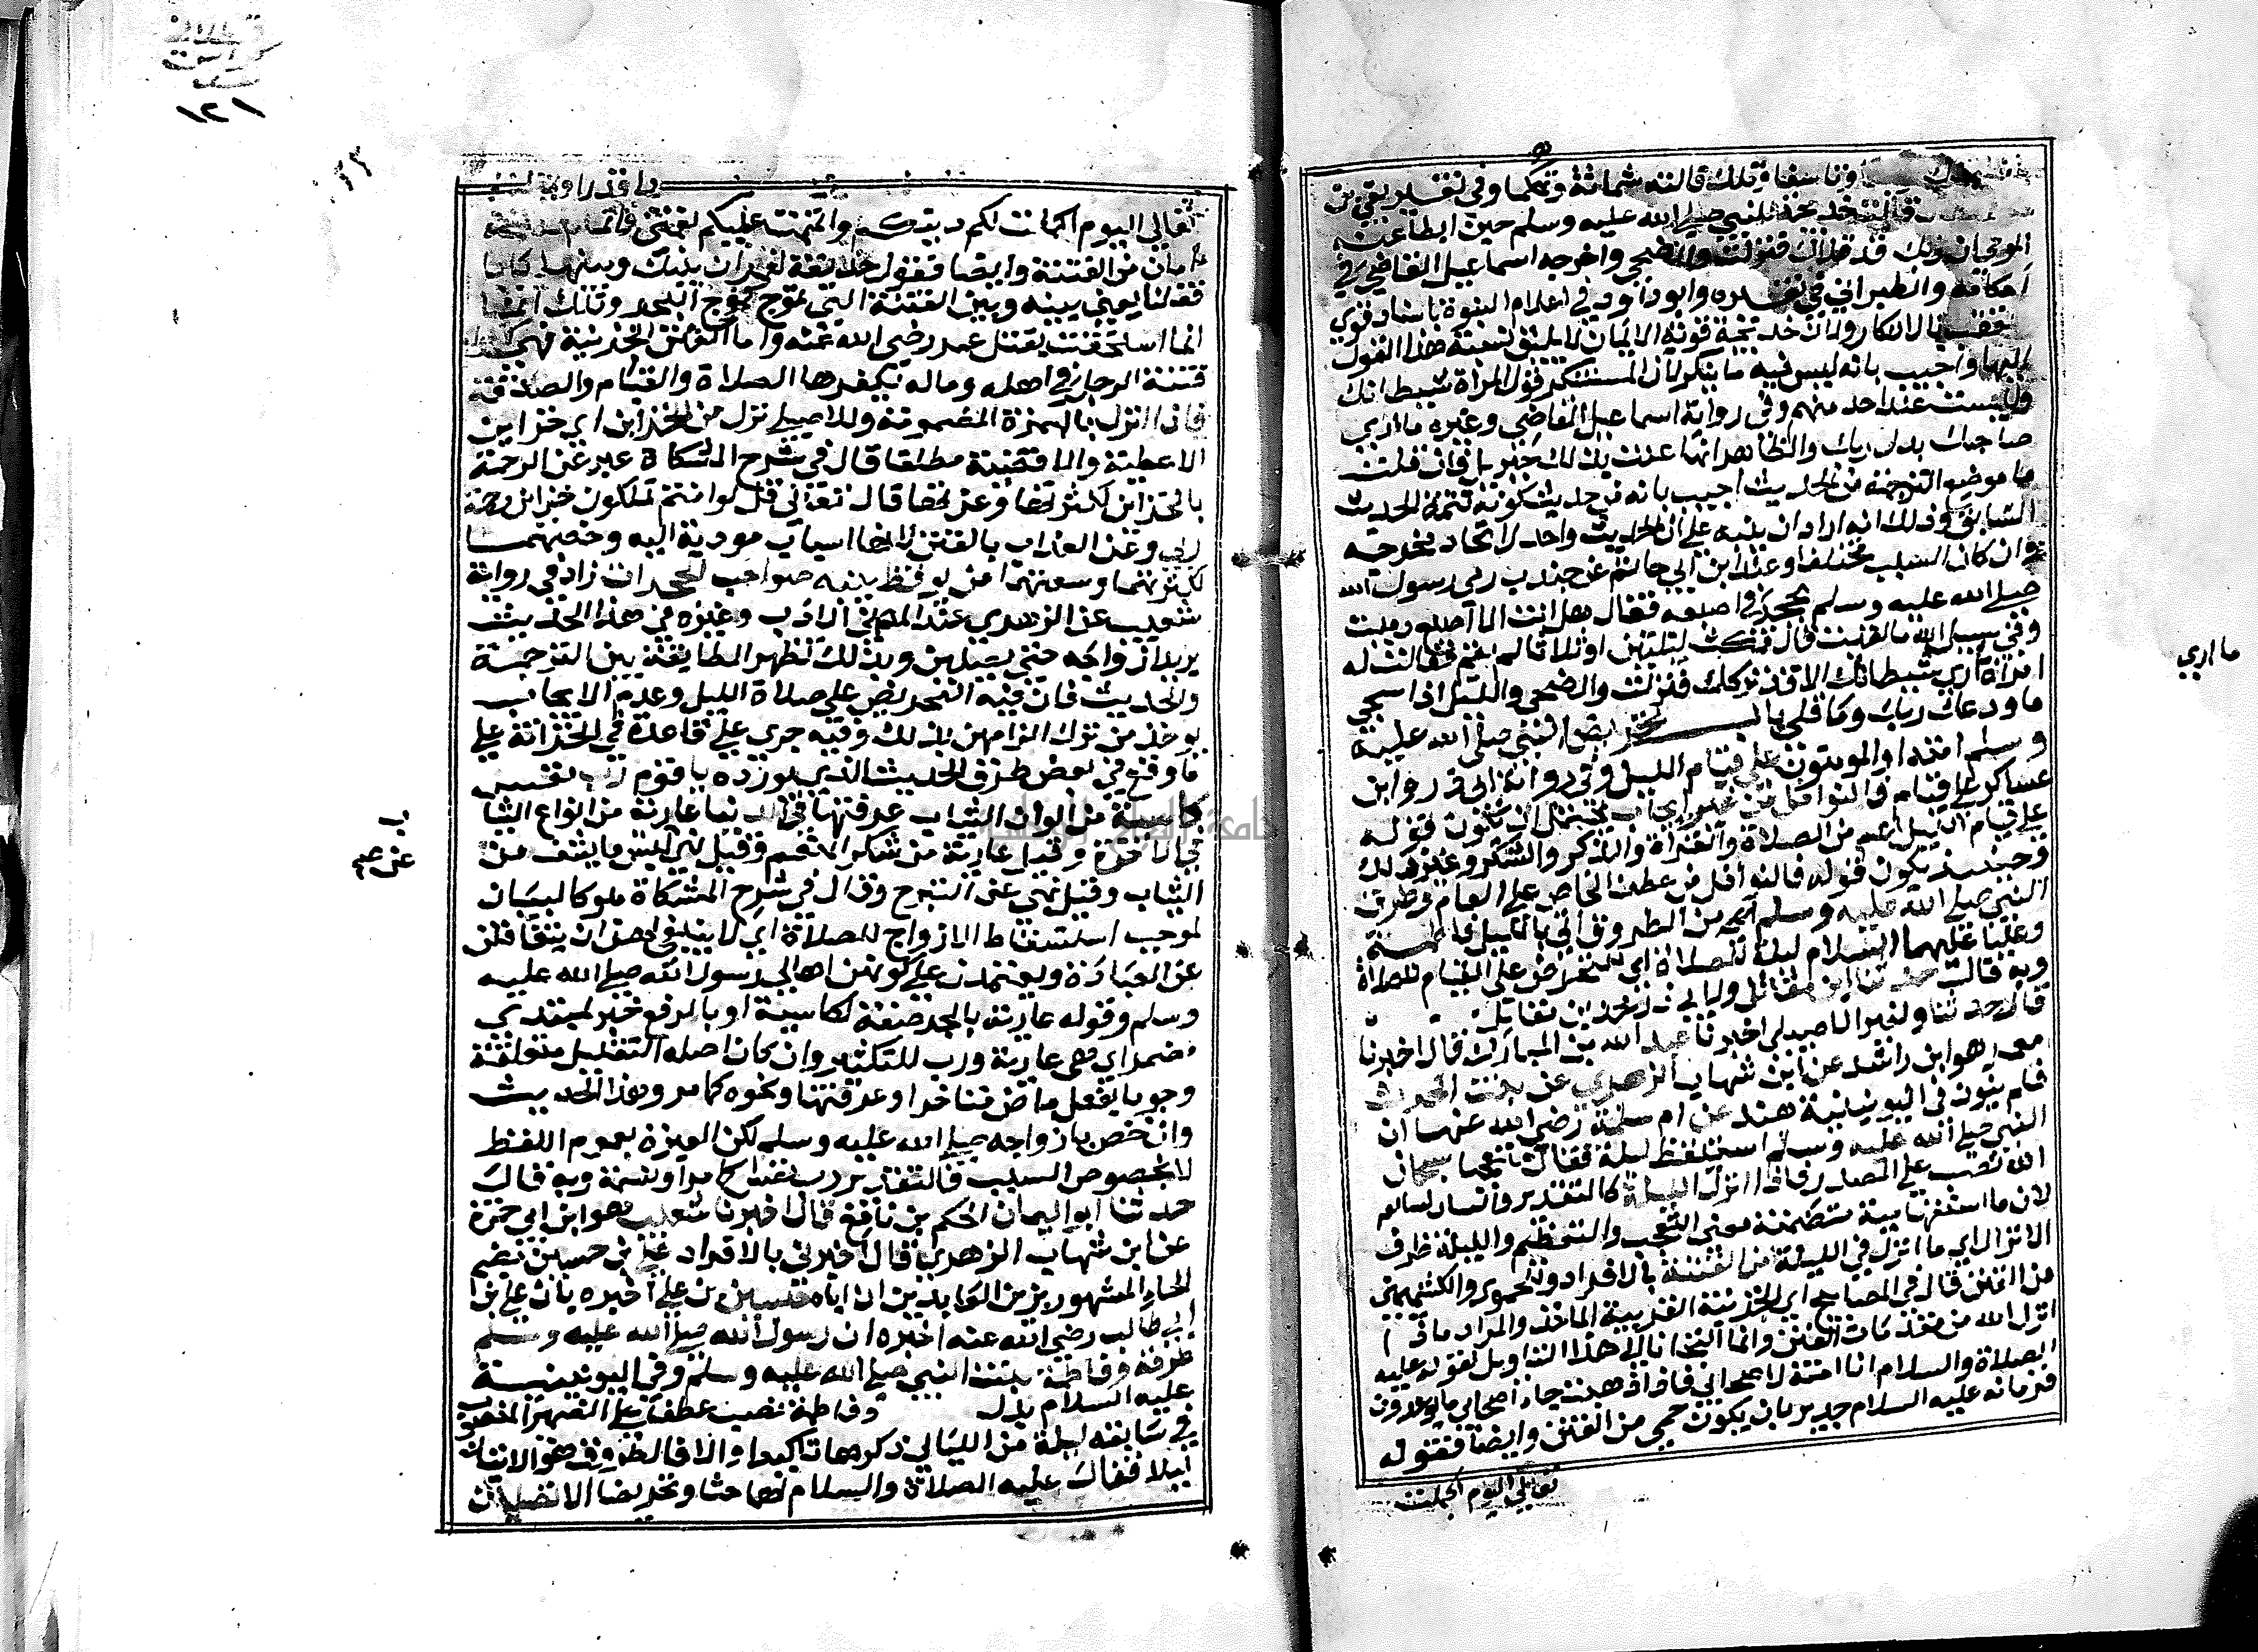 وتأسفا وتلك قالته شماتة وتهكما وفي تفسير بقي بن
قالت خديجة للنبي صلى الله عليه وسلم حين ابطا عنه
الوحي ان ربك قد قلاك فنزلت والضحى واخرجه اسماعيل القاضي في
احكامه والطبراني في تفسيره وابو داود في اعلام النبوة باسناد قوي
بالانكار ولان خديجة قوية الايمان لا يليق نسبة هذا القول
اليها واجيب بانه ليس فيه ما ينكر لان المستنكر قول المراة شيطانك
وليست عند احد منهم وفي رواية اسماعيل القاضي وغيره ما ارى
صاحبك بدل ربك والظاهر انها عنت بذلك جبريل فان قلت
ما موضع الترجمة من الحديث اجيب بانه من حديث كونه تتمة الحديث
السابق وذلك انه اراد ان ينبه على ان الحديث واحد لاتحاد مخرجه
وان كان السبب مختلفا وعند ابن ابي حاتم عن جندب رمي رسول الله
صلى الله عليه وسلم بحجر في اصبعه فقال هل انت الا اصبع دميت
وفي سبيل الله ما لقيت قال فمكث ليلتين او ثلاثا لم يقم فقالت له
امراة ارى شيطانك الا قد تركك فنزلت والضحى والليل اذا سجى
ما ودعك ربك وما قلى باب تحريض النبي صلى الله عليه
وسلم امته او المومنين على قيام الليل وفي رواية ابي ذر وابن
عساكر على قيام والنوافل من غير ايجاب يحتمل ان يكون قوله
على قيام الليل اعم من الصلاة والقراة والذكر والشكر وغير ذلك
وحينئذ يكون قوله والنوافل من عطف الخاص على العام وطرق
النبي صلى الله عليه وسلم من الطروق اتى بالليل فاطمة
وعليا عليهما السلام ليلة للصلاة اي للتحريض على القيام للصلاة
وبه قال حدثنا ابن مقاتل ولابي ذر محمد بن مقاتل
قال حدثنا ولغير الاصيلي اخبرنا عبد الله بن المبارك قال اخبرنا
معمر هو ابن راشد عن ابن شهاب الزهري عن بنت الحرث
هند عن ام سلمة رضي الله عنها ان
النبي صلى الله عليه وسلم استيقظ ليلة فقال متعجبا سبحان
الله نصب على المصدر ماذا انزل الليلة كالتقدير
لان ما استفهامية متضمنة معنى التعجب والتعظيم والليلة ظرف
الانزال اي ما انزل في الليلة من الفتنة بالافراد وللحموي والكشميهني
من الفتن قال في المصابيح اي الجزئية القريبة الماخذ والمراد ماذا
انزل الله من مقدمات الفتن وانما التجانا الى هذا التاويل لقوله عليه
الصلاة والسلام انا امنة لاصحابي فاذا ذهبت جاء اصحابي ما يوعدون
فزمانه عليه السلام جدير بان يكون حمي من الفتن وايضا فقوله
تعالى اليوم اكملت
ما ارى
١٢١
تعالى اليوم اكملت لكم دينكم واتممت عليكم نعمتي
امان من الفتنة وايضا فقول حذيفة لعمر ان بينك وبينها بابا
مغلقا يعني بينه وبين الفتنة التي تموج كموج البحر وتلك
انما استحقت بقتل عمر رضي الله عنه واما الفتن الجزئية فهي
فتنة الرجل في اهله وماله يكفرها الصلاة والقيام والصدقة
ماذا انزل بالهمزة المضمومة وللاصيلي نزل من الخزاين اي خزاين
الاعطية والاقضية مطلقا قال في شرح المشكاة عبر عن الرحمة
بالخزاين لكثرتها وعزتها قال تعالى قل لو انتم تملكون خزاين رحمة
ربي وعن العذاب بالفتن لانها اسباب مودية اليه وجمعهما
لكثرتهما وسعتهما من يوقظ ينبه صواحب الحجرات زاد في رواية
شعيب عن الزهري عند المولف في الادب وغيره في هذا الحديث
يريد ازواجه حتى يصلين وبذلك تظهر المطابقة بين الترجمة
والحديث فان فيه التحريض على صلاة الليل وعدم الايجاب
يوخذ من ترك الزامهن بذلك وفيه جري على قاعدته في الحوالة على
ما وقع في بعض طرق الحديث الذي يورده يا قوم رب نفس
كاسية من الوان الثياب عرفتها في الدنيا عارية من انواع الثياب
في الاخرة وقيل عارية من شكر المنعم وقيل نهي لبس ما يشف من
الثياب وقيل نهي عن التبرج وقال في شرح المشكاة هو كالبيان
لموجب استنشاط الازواج للصلاة اي لا ينبغي لهن ان يتغافلن
عن العبادة ويعتمدن على كونهن اهالي رسول الله صلى الله عليه
وسلم وقوله عارية بالجر صفة لكاسية او بالرفع خبر لمبتدي
مضمر اي هي عارية ورب للتكثير وان كان اصله التقليل متعلقة
وجوبا بفعل ماض متاخر اي عرفتها ونحوه كما مر وهذا الحديث
وان خص بازواجه صلى الله عليه وسلم لكن العبرة بعموم اللفظ
لا بخصوص السبب فالتقدير رب نفس كما مر او نسمة وبه قال
حدثنا ابو اليمان الحكم بن نافع قال اخبرنا شعيب هو ابن ابي حمزة
عن ابن شهاب الزهري قال اخبرني بالافراد علي بن حسين بضم
الحاء المشهور بزين العابدين ان اباه حسين بن علي اخبره بان علي بن
ابي طالب رضي الله عنه اخبره ان رسول الله صلى الله عليه وسلم
طرقه وفاطمة بنت النبي صلى الله عليه وسلم وفي اليونينية
عليه السلام بدل وفاطمة نصب عطف على الضمير المنصوب
في سابقه ليلة من الليالي ذكرها تاكيدا والا فالطروق هو الاتيان
ليلا فقال عليه الصلاة والسلام لهما حثا وتحريضا الا تصليان